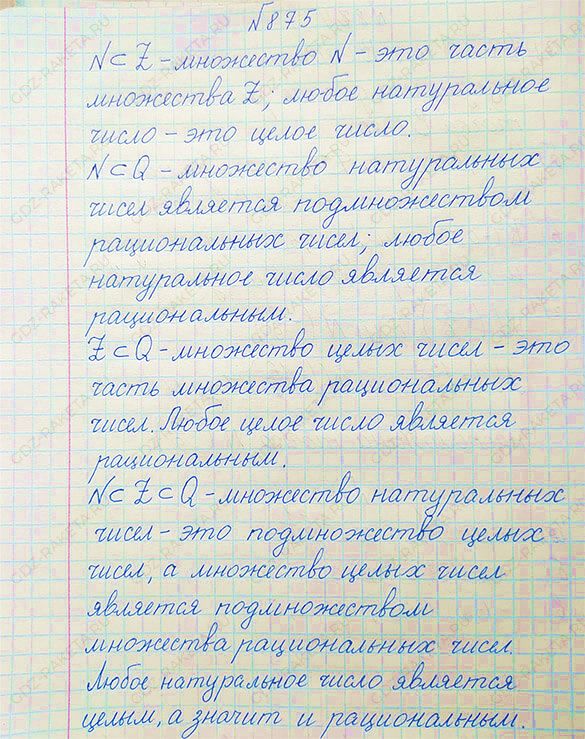 №875
N⊂Z - множество N - это часть
множества Z; любое натуральное
число - это целое число.
N⊂Q - множество натуральных
чисел является подмножеством
рациональных чисел; любое
натуральное число является
рациональным.
Z⊂Q - множество целых чисел - это
часть множества рациональных
чисел. Любое целое число является
рациональным.
N⊂Z⊂Q - множество натуральных
чисел - это подмножество целых
чисел, а множество целых чисел
является подмножеством
множества рациональных чисел.
Любое натуральное число является
целым, а значит и рациональным.
GDZ-RAKETA.RU